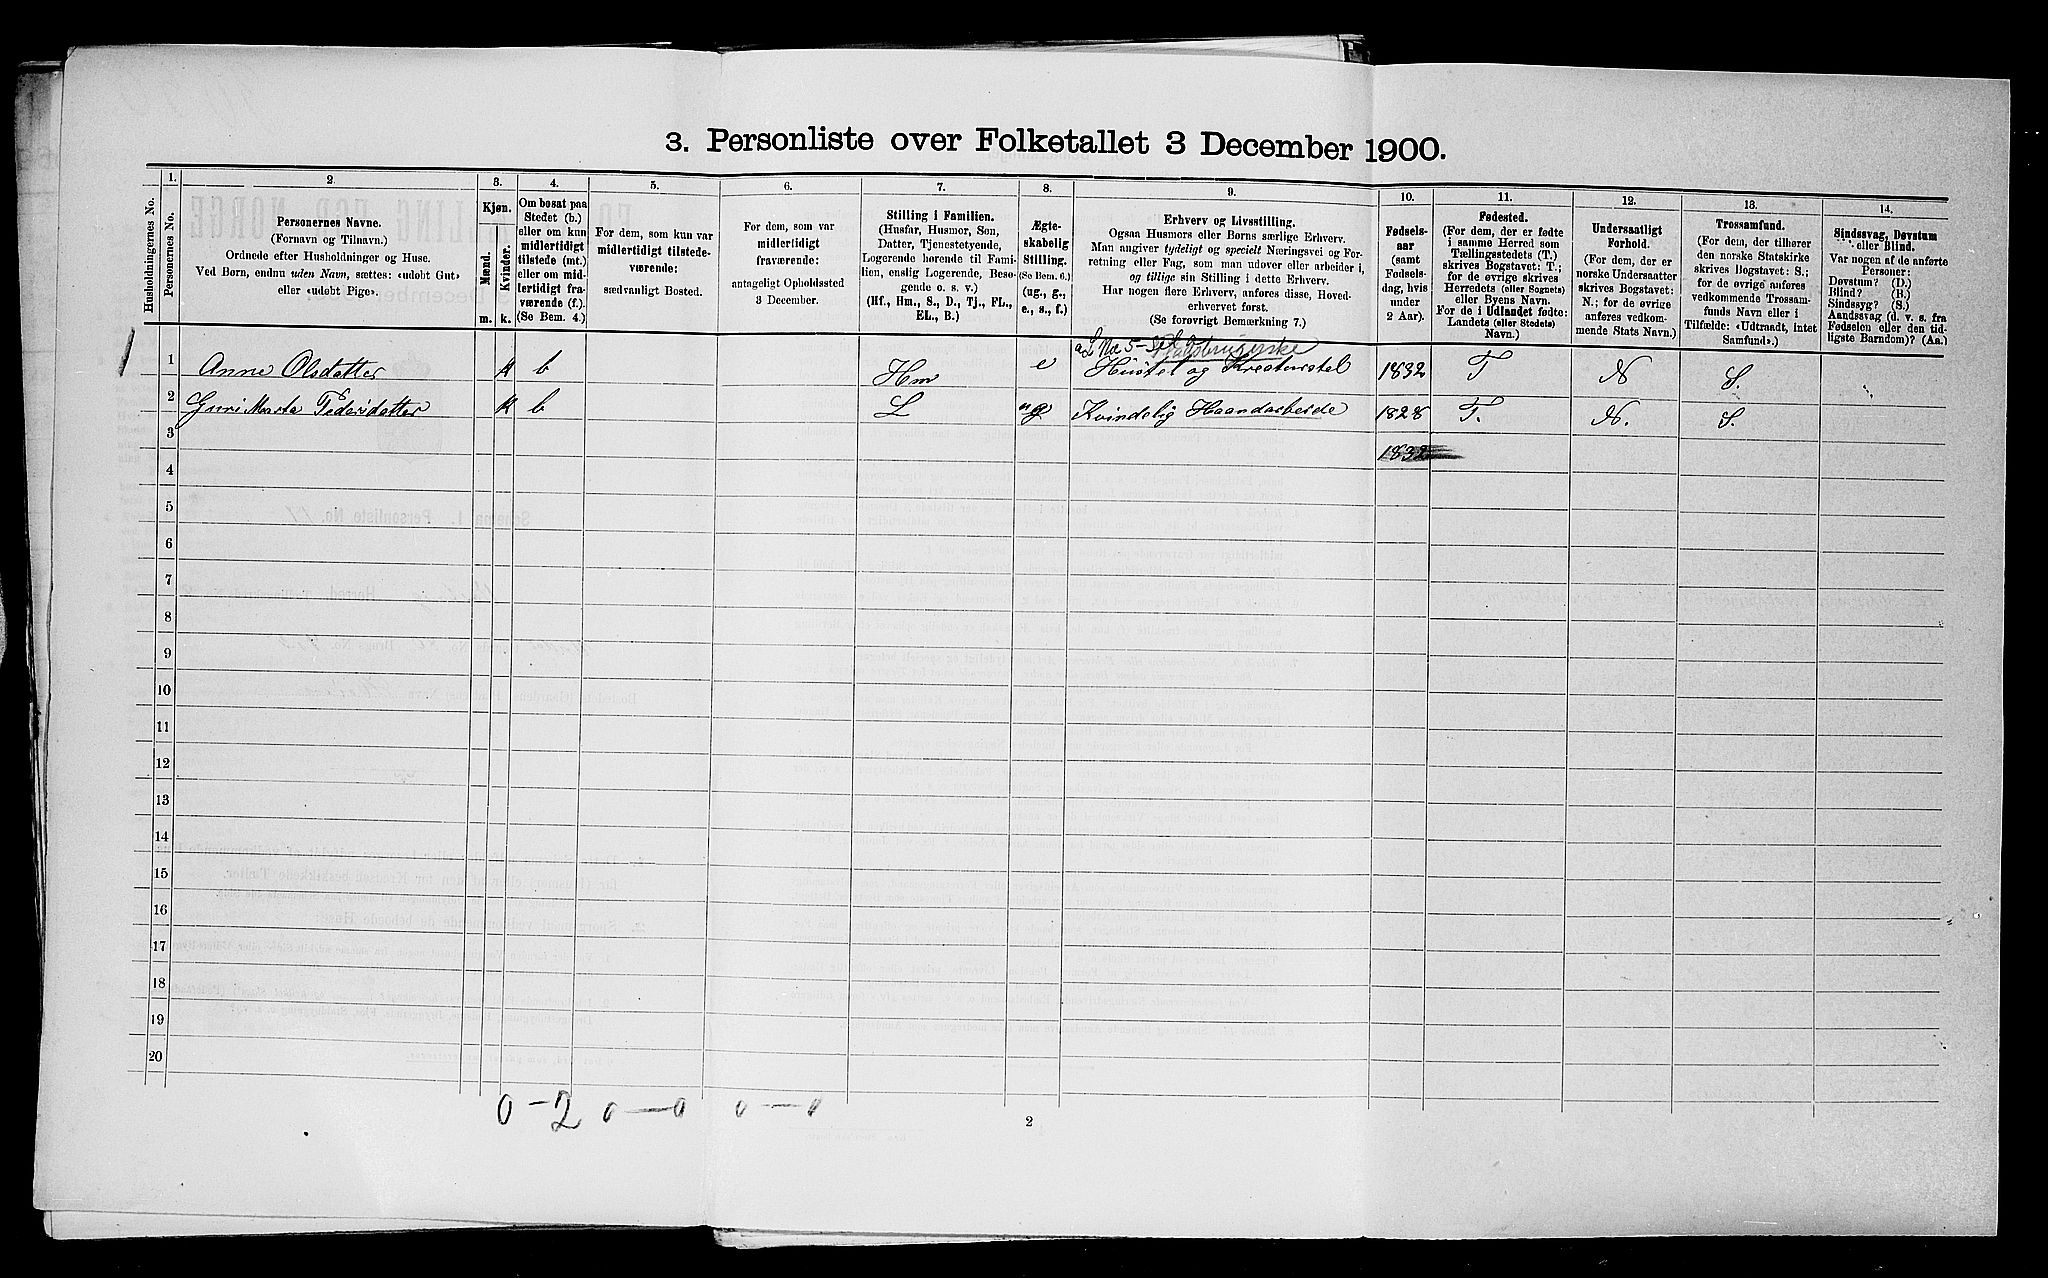 3. Personliste over Folketallet 3 December 1900.
Husholdningernes No.
1.
Personernes No.
2.
Personernes Navne.
(Fornavn og Tilnavn.)
Ordnede efter Husholdninger og Huse.
Ved Børn, endnu uden Navn, sættes: «udøbt Gut»
eller «udøbt Pige».
3.
Kjøn.
Mænd.
Kvinder.
m.
k.
4.
Om bosat paa
Stedet (b.)
eller om kun
midlertidigt
tilstede (mt.)
eller om mid-
lertidigt fra-
værende (f.).
(Se Bem. 4.)
5.
For dem, som kun var
midlertidigt tilstede-
værende:
sædvanligt Bosted.
6.
For dem, som var
midlertidigt
fraværende:
antageligt Opholdssted
3 December.
7.
Stilling i Familien.
(Husfar, Husmor, Søn,
Datter, Tjenestetyende,
Logerende hørende til Fami-
lien, enslig Logerende, Besø-
gende o. s. v.)
(Hf., Hm., S., D., Tj., FL.,
EL., B.)
8.
Ægte-
skabelig
Stilling.
(Se Bem. 6.)
(ug., g.,
e., s., f.)
9.
Erhverv og Livsstilling.
Ogsaa Husmors eller Børns særlige Erhverv.
Man angiver tydeligt og specielt Næringsvei og For-
retning eller Fag, som man udøver eller arbeider i,
og tillige sin Stilling i dette Erhverv.
Har nogen flere Erhverv, anføres disse, Hoved-
erhvervet først.
(Se forøvrigt Bemærkning 7.)
10.
Fødsels-
aar
(samt
Fødsels-
dag, hvis
under
2 Aar).
11.
Fødested.
(For dem, der er fødte
i samme Herred som
Tællingsstedets (T.)
skrives Bogstavet: T.;
for de øvrige skrives
Herredets (eller Sognets)
eller Byens Navn.
For de i Udlandet fødte:
Landets (eller Stedets)
Navn.)
12.
Undersaatligt
Forhold.
(For dem, der er
norske Undersaatter
skrives Bogstavet:
N.; for de øvrige
anføres vedkom-
mende Stats Navn.)
13.
Trossamfund.
(For dem, der tilhører
den norske Statskirke
skrives Bogstavet: S.;
for de øvrige anføres
vedkommende Trossam-
funds Navn eller i
Tilfælde: «Udtraadt, intet
Samfund».)
14.
Sindssvag, Døvstum
eller Blind.
Var nogen af de anførte
Personer:
Døvstum? (D.)
Blind? (B.)
Sindssyg? (S.)
Aandssvag (d. v. s. fra
Fødselen eller den tid-
ligste Barndom)? (Aa.)
1 Anne Olsdatter k b Hm e Hustel og Kreaturstel 1832 T N S.
2 Guri Marta Pedersdatter k b L ug Kvindelig Haandarbeide 1828 T. N. S.
3
1832
4
5
6
7
8
9
10
11
12
13
14
15
16
17
18
19
20
0-2 0-0 0-0
2